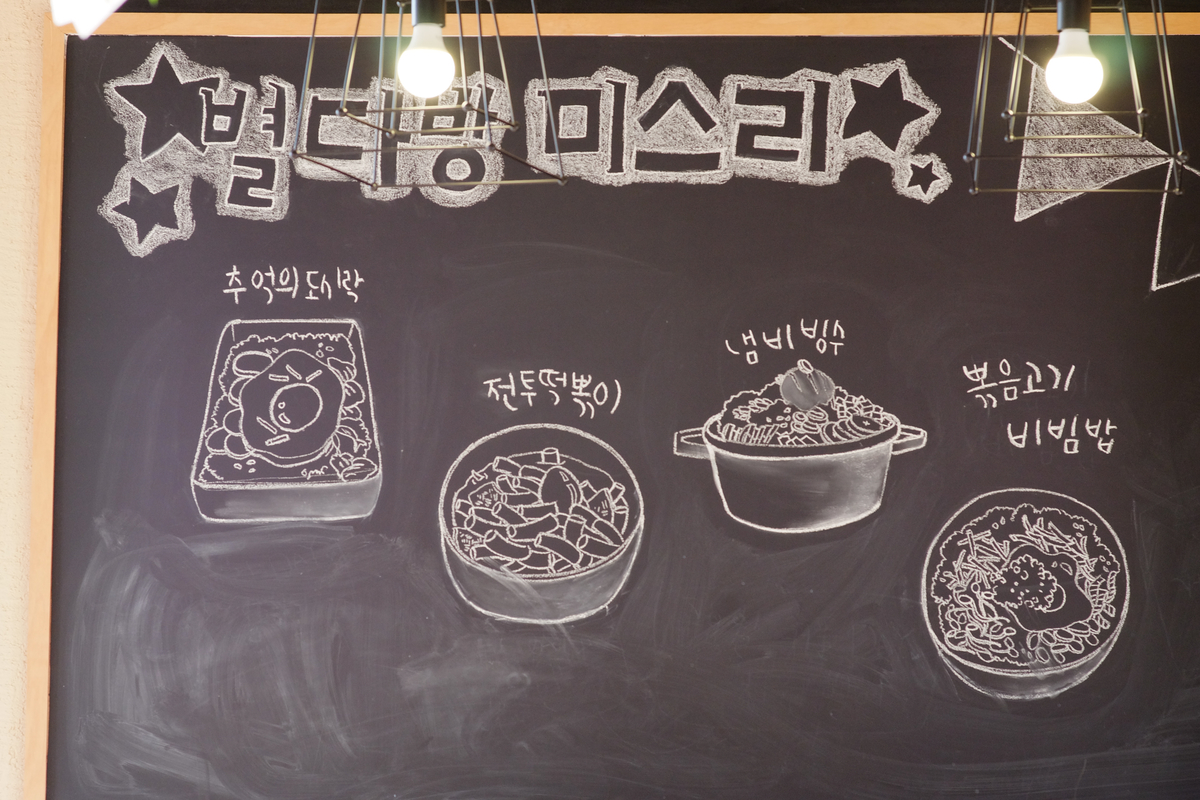 별다방 미스리
추억의 도시락
냄비빙수
전투떡볶이
볶음고기
비빔밥